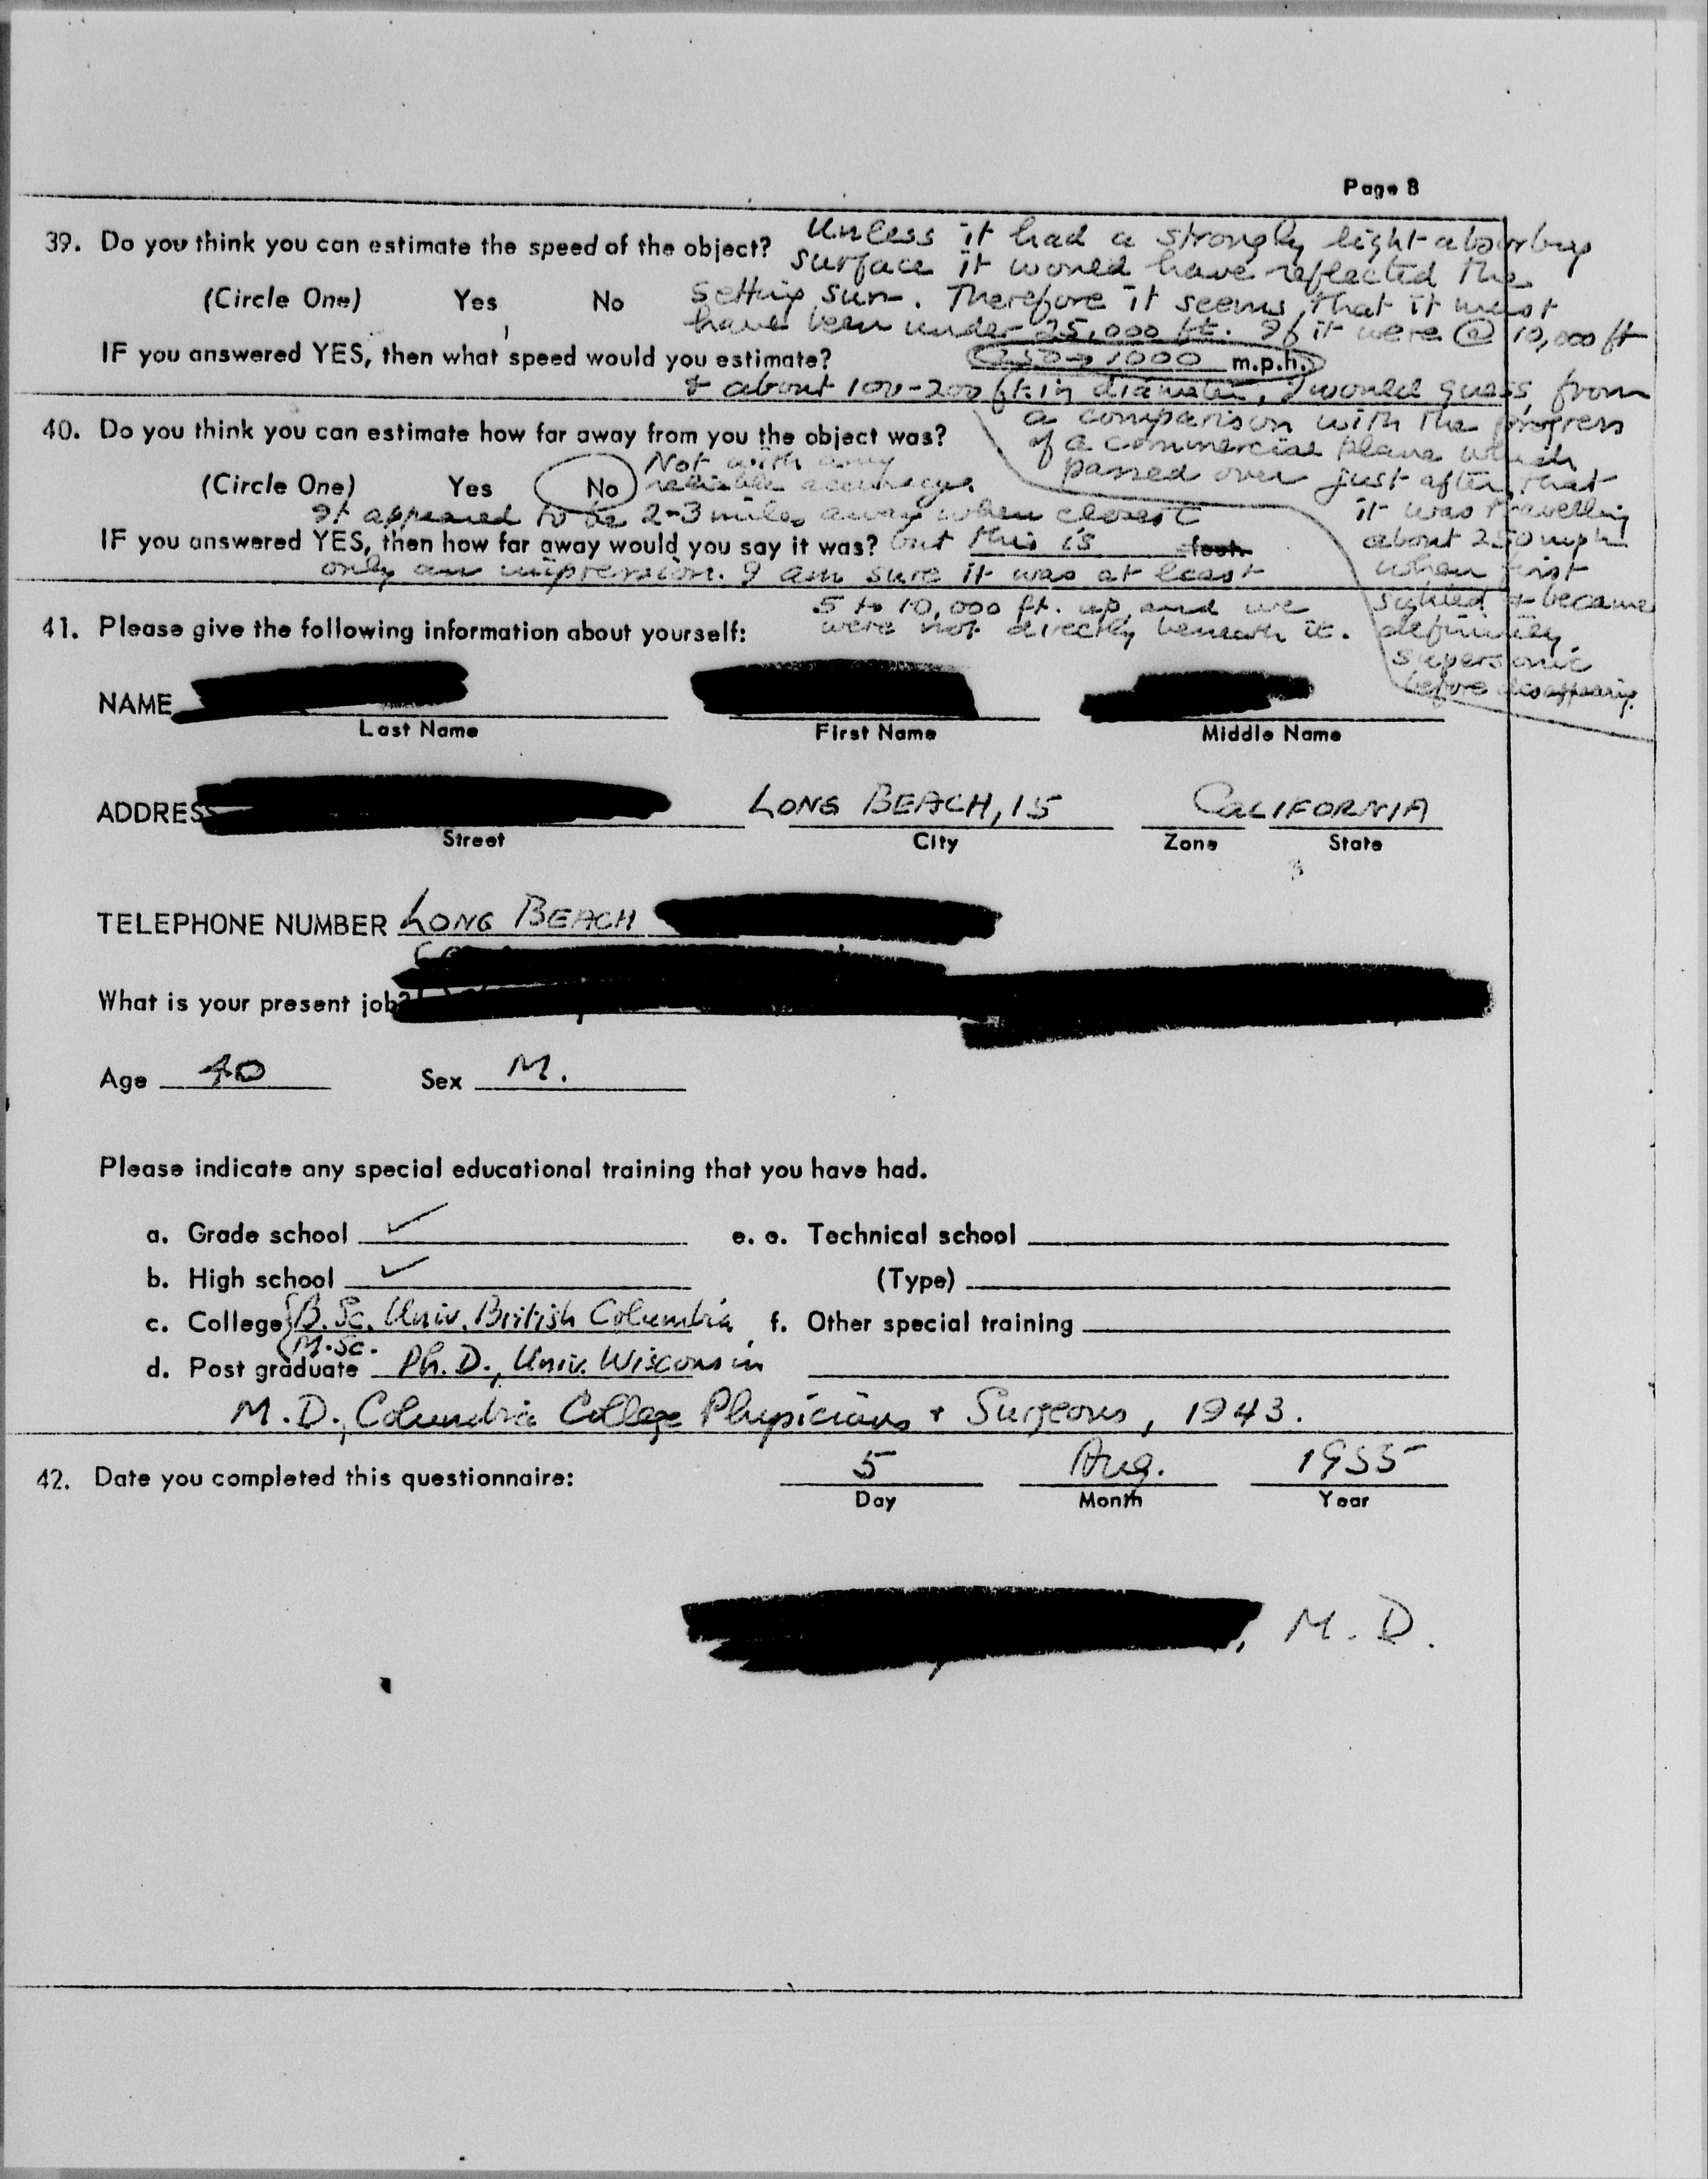 Page 8
39. Do you think you can estimate the speed of the object?
(Circle One) Yes No
Unless it had a strongly light-absorbing
surface it would have reflected the
setting sun. Therefore it seems that it must
have been under 25,000 ft. If it were @ 10,000 ft
IF you answered YES, then what speed would you estimate? 250→1000 m.p.h.
& about 100-200 ft. in diameter, I would guess, from
a comparison with the progress
of a commercial plane which
passed over just after, that
it was travelling
about 250 mph
when first
sighted & became
definitely
supersonic
before disappearing.
40. Do you think you can estimate how far away from you the object was?
(Circle One) Yes No Not with any
reliable accuracy.
It appeared to be 2-3 miles away when closest
IF you answered YES, then how far away would you say it was? but this is feet.
only an impression. I am sure it was at least
5 to 10,000 ft. up and we
were not directly beneath it.
41. Please give the following information about yourself:
NAME
Last Name First Name Middle Name
ADDRESS LONG BEACH, 15 CALIFORNIA
Street City Zone State
TELEPHONE NUMBER LONG BEACH
What is your present job?
Age 40 Sex M.
Please indicate any special educational training that you have had.
a. Grade school ✓ e. e. Technical school
b. High school ✓ (Type)
c. College B.Sc. Univ. British Columbia f. Other special training
M.Sc.
d. Post graduate Ph.D., Univ. Wisconsin
M.D., Columbia College Physicians + Surgeons, 1943.
42. Date you completed this questionnaire: 5 Aug. 1955
Day Month Year
, M.D.